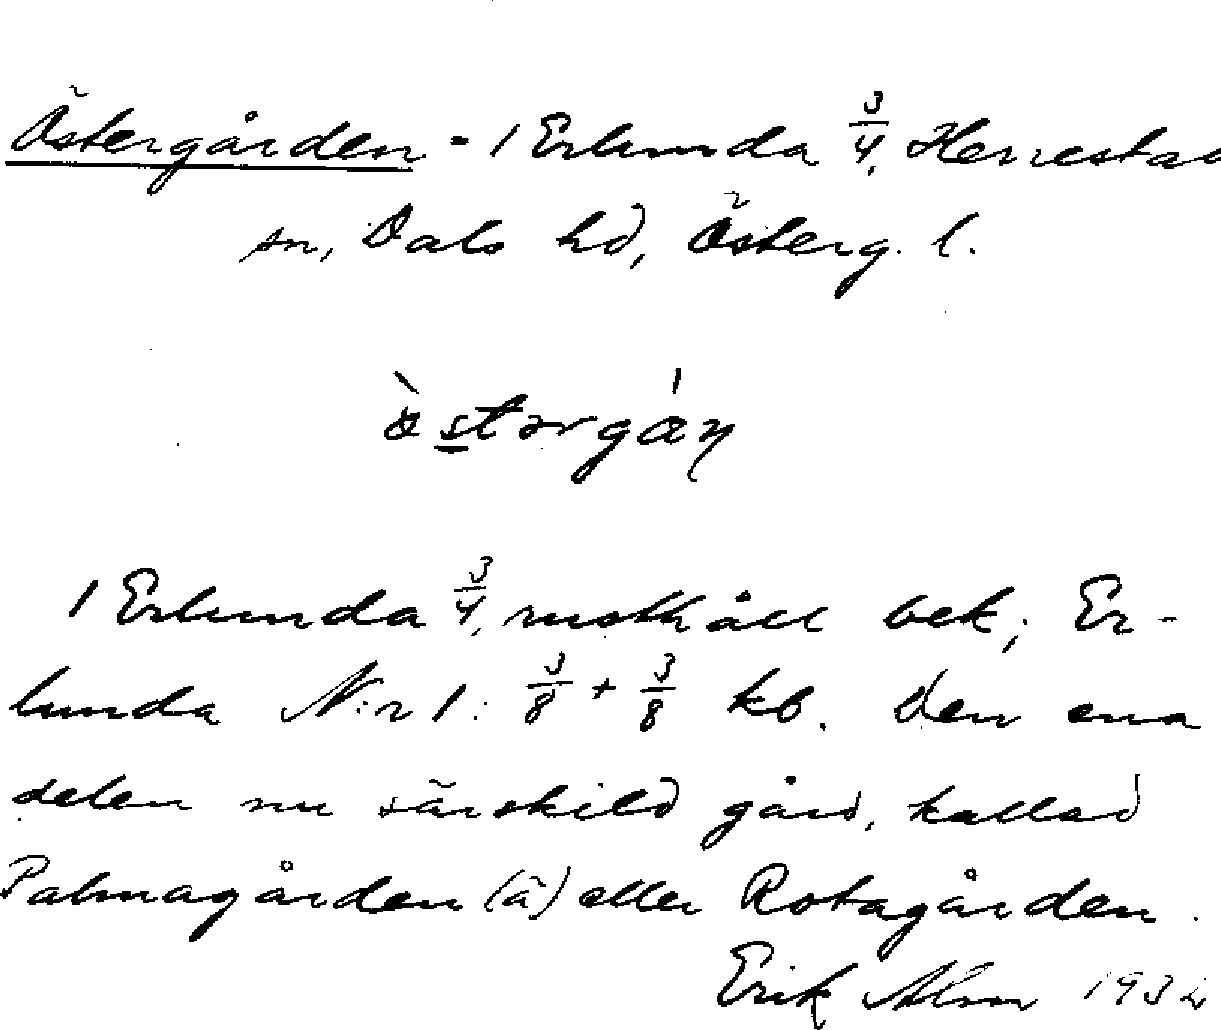 Östergården - 1 Erlunda 3/4, Herrestad
sn, Dals hd, Österg. l.
östərgán
1 Erlunda 3/4, rusthåll bek; Er-
lunda N:r 1: 3/8 + 3/8 kb. Den ena
delen nu särskild gård, kallad
Palmagården (ā) eller Rotagården.
Erik Alm 1932